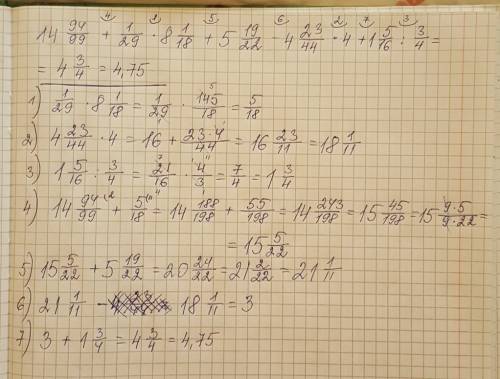 4 1 5 6 2 7 3
14 94/99 + 1/29 · 8 1/18 + 5 19/22 - 4 23/44 · 4 + 1 5/16 : 3/4 =
= 4 3/4 = 4,75
1) 1/29 · 8 1/18 = 1/29 · 145/18 = 5/18
2) 4 23/44 · 4 = 16 + 23·4/44 = 16 23/11 = 18 1/11
3) 1 5/16 : 3/4 = 21/16 · 4/3 = 7/4 = 1 3/4
4) 14 94/99 + 5/18 = 14 188/198 + 55/198 = 14 243/198 = 15 45/198 = 15 9·5/9·22 =
= 15 5/22
5) 15 5/22 + 5 19/22 = 20 24/22 = 21 2/22 = 21 1/11
6) 21 1/11 - 18 1/11 = 3
7) 3 + 1 3/4 = 4 3/4 = 4,75